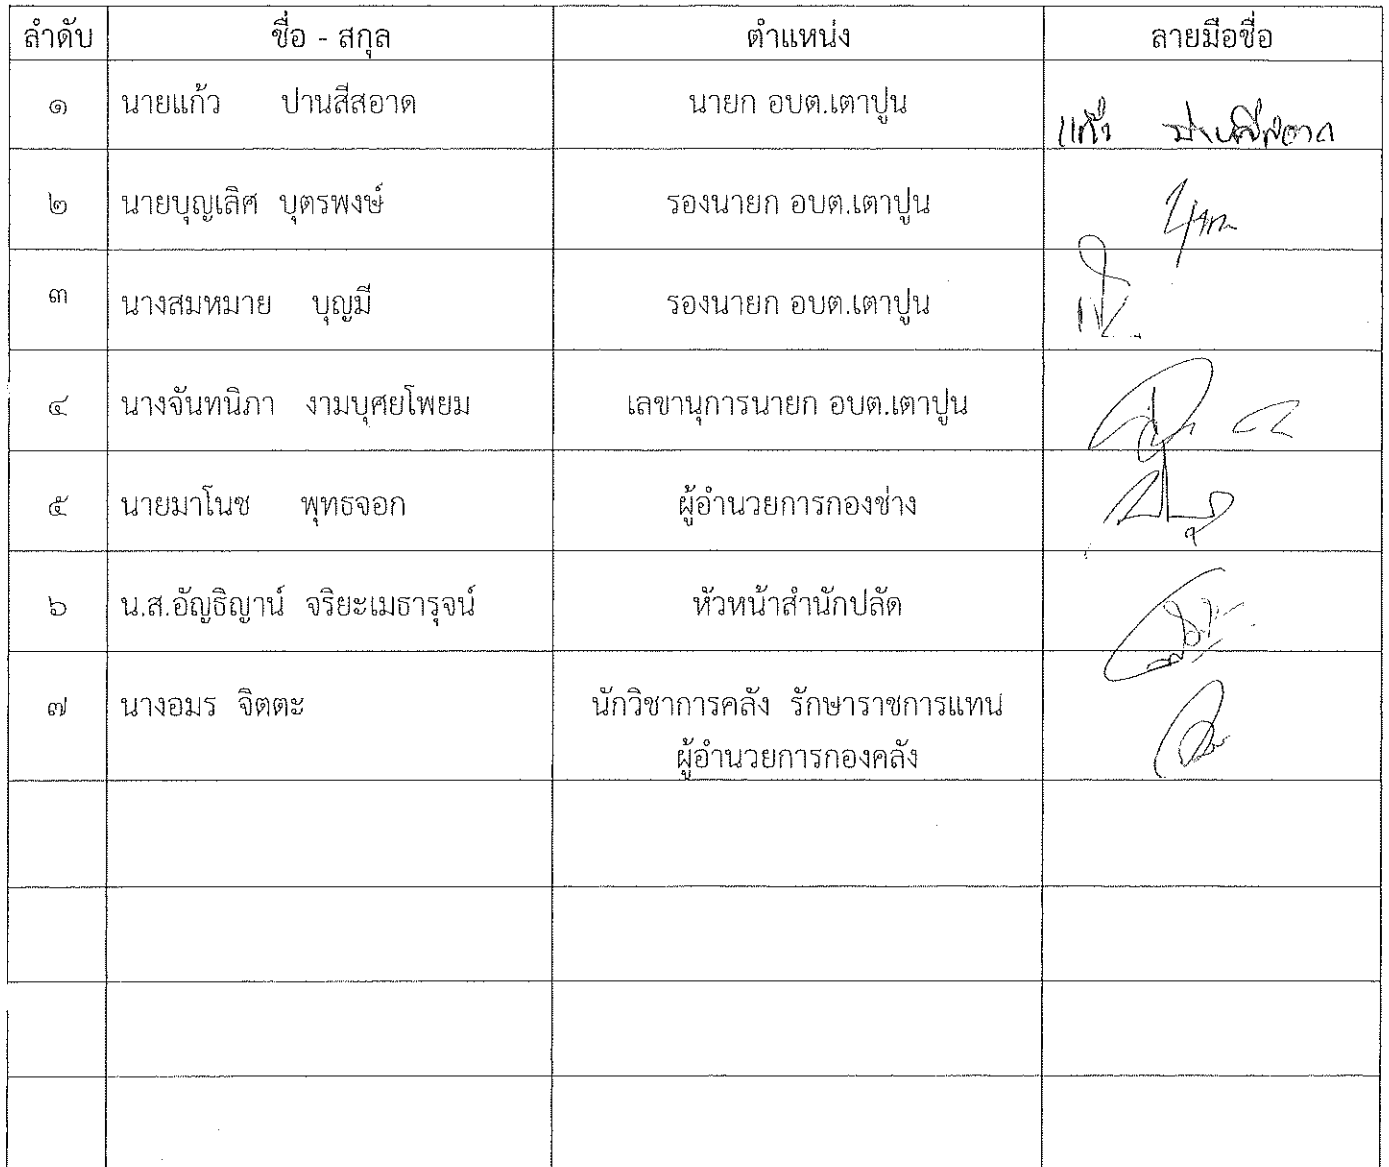 ลำดับ ชื่อ - สกุล ตำแหน่ง ลายมือชื่อ
๑ นายแก้ว ปานสีสอาด นายก อบต.เตาปูน แก้ว ปานสีสอาด
๒ นายบุญเลิศ บุตรพงษ์ รองนายก อบต.เตาปูน
๓ นางสมหมาย บุญมี รองนายก อบต.เตาปูน
๔ นางจันทนิภา งามบุศยโพยม เลขานุการนายก อบต.เตาปูน
๕ นายมาโนช พุทธจอก ผู้อำนวยการกองช่าง
๖ น.ส.อัญธิญาน์ จริยะเมธารุจน์ หัวหน้าสำนักปลัด
๗ นางอมร จิตตะ นักวิชาการคลัง รักษาราชการแทน
ผู้อำนวยการกองคลัง